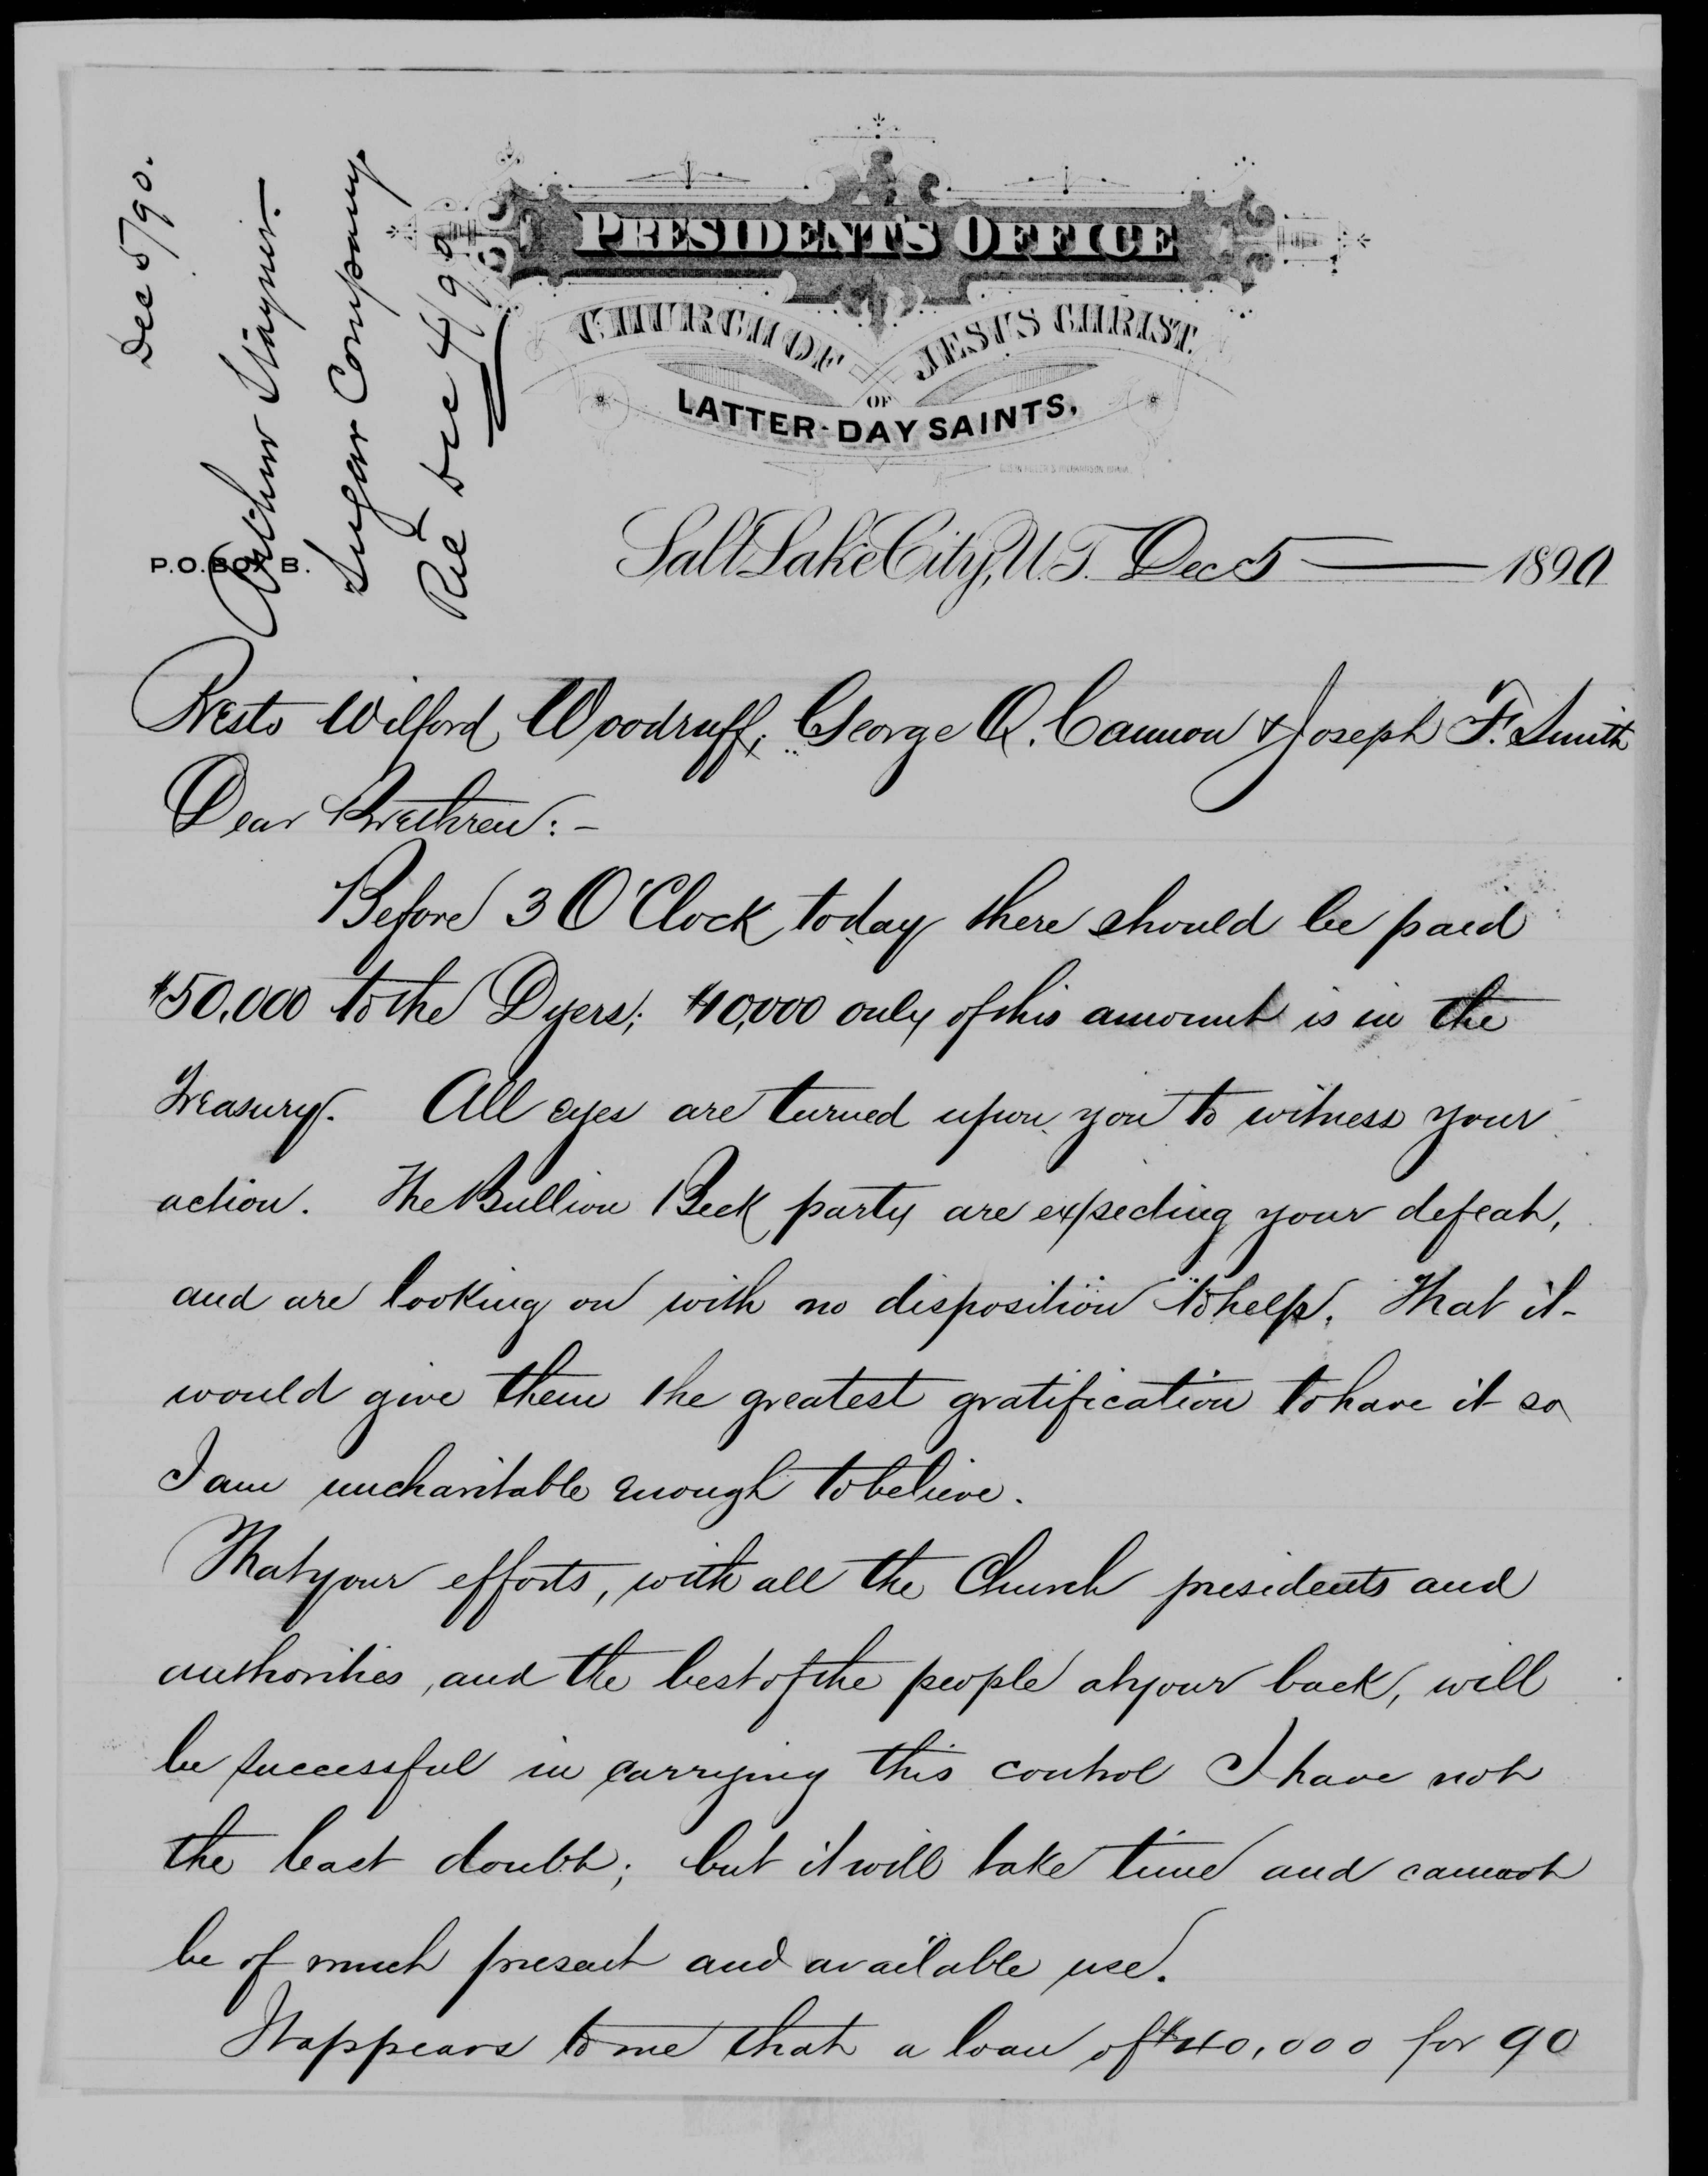 Dec 5/90.
Arthur Stayner
Sugar Company
Rec Dec 4/90
PRESIDENT'S OFFICE
CHURCH OF JESUS CHRIST
OF
LATTER-DAY SAINTS,
P.O. BOX B.
Salt Lake City, U.T. Dec 5 1890
Prests Wilford Woodruff, George Q. Cannon & Joseph F. Smith
Dear Brethren:-
Before 3 O'Clock today there should be paid
$50,000 to the Dyers; $10,000 only of this amount is in the
Treasury. All eyes are turned upon you to witness your
action. The Bullion Beck party are expecting your defeat,
and are looking on with no disposition to help. That it
would give them the greatest gratification to have it so
I am uncharitable enough to believe.
That your efforts, with all the Church presidents and
authorities, and the best of the people at your back, will
be successful in carrying this control I have not
the least doubt; but it will take time and cannot
be of much present and available use.
It appears to me that a loan of $40,000 for 90